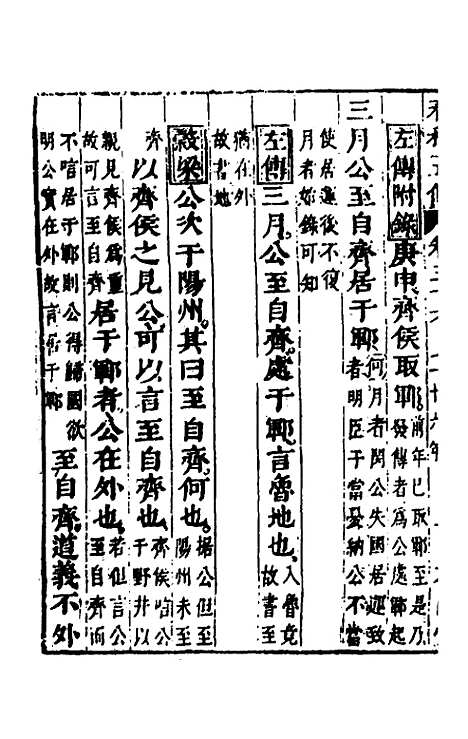 左傳附錄庚申齊侯取鄆前年已取鄆至是乃發傳者為公處鄆起
三月公至自齊居于鄆何月者閔公失國居運致者明臣子當憂納公不當
使居運後不復月者始錄可知
左傳三月公至自齊處于鄆言魯地也入魯竟故書至
猶在外故書地
穀梁公次于陽州其曰至自齊何也據公但至陽州未至
齊以齊侯之見公可以言至自齊也齊侯唁公于野井以
親見齊侯為重故可言至自齊居于鄆者公在外也若但言公至自齊而
不唁居于鄆則公得歸國欲明公實在外故言居于鄆至自齊道義不外